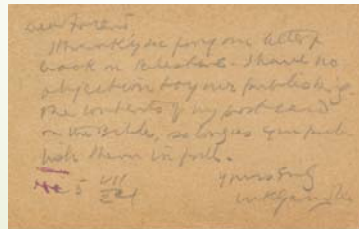 Dear Friend
I thank you for your letter &
book on Palestine. I have no
objection to your publishing
the contents of my post card
on the Bible, so long as you pub
lish them in full.
Yours sincly
MKGandhi